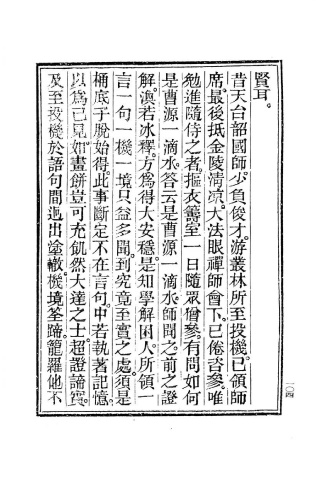 賢耳。
昔天台韶國師少負俊才。游叢林所至投機。已領師
席。最後抵金陵清涼大法眼禪師會下。已倦咨參。唯
勉進隨侍之者。摳衣籌室一日隨眾猶參。有問如何
是曹源一滴水。答云是曹源一滴水。師聞之前之證
解。渙若冰釋。方為得大安穩。是知學解困人。所領一
言一句一機一境只益多聞。到究竟至實之處。須是
桶底子脫始得。此事斷定不在言句中。若執著記憶
以為己見。如畫餅豈可充飢。然大達之士超證諦實。
及至投機於語句間迥出塗轍。機境筌蹄籠羅他不
一〇四